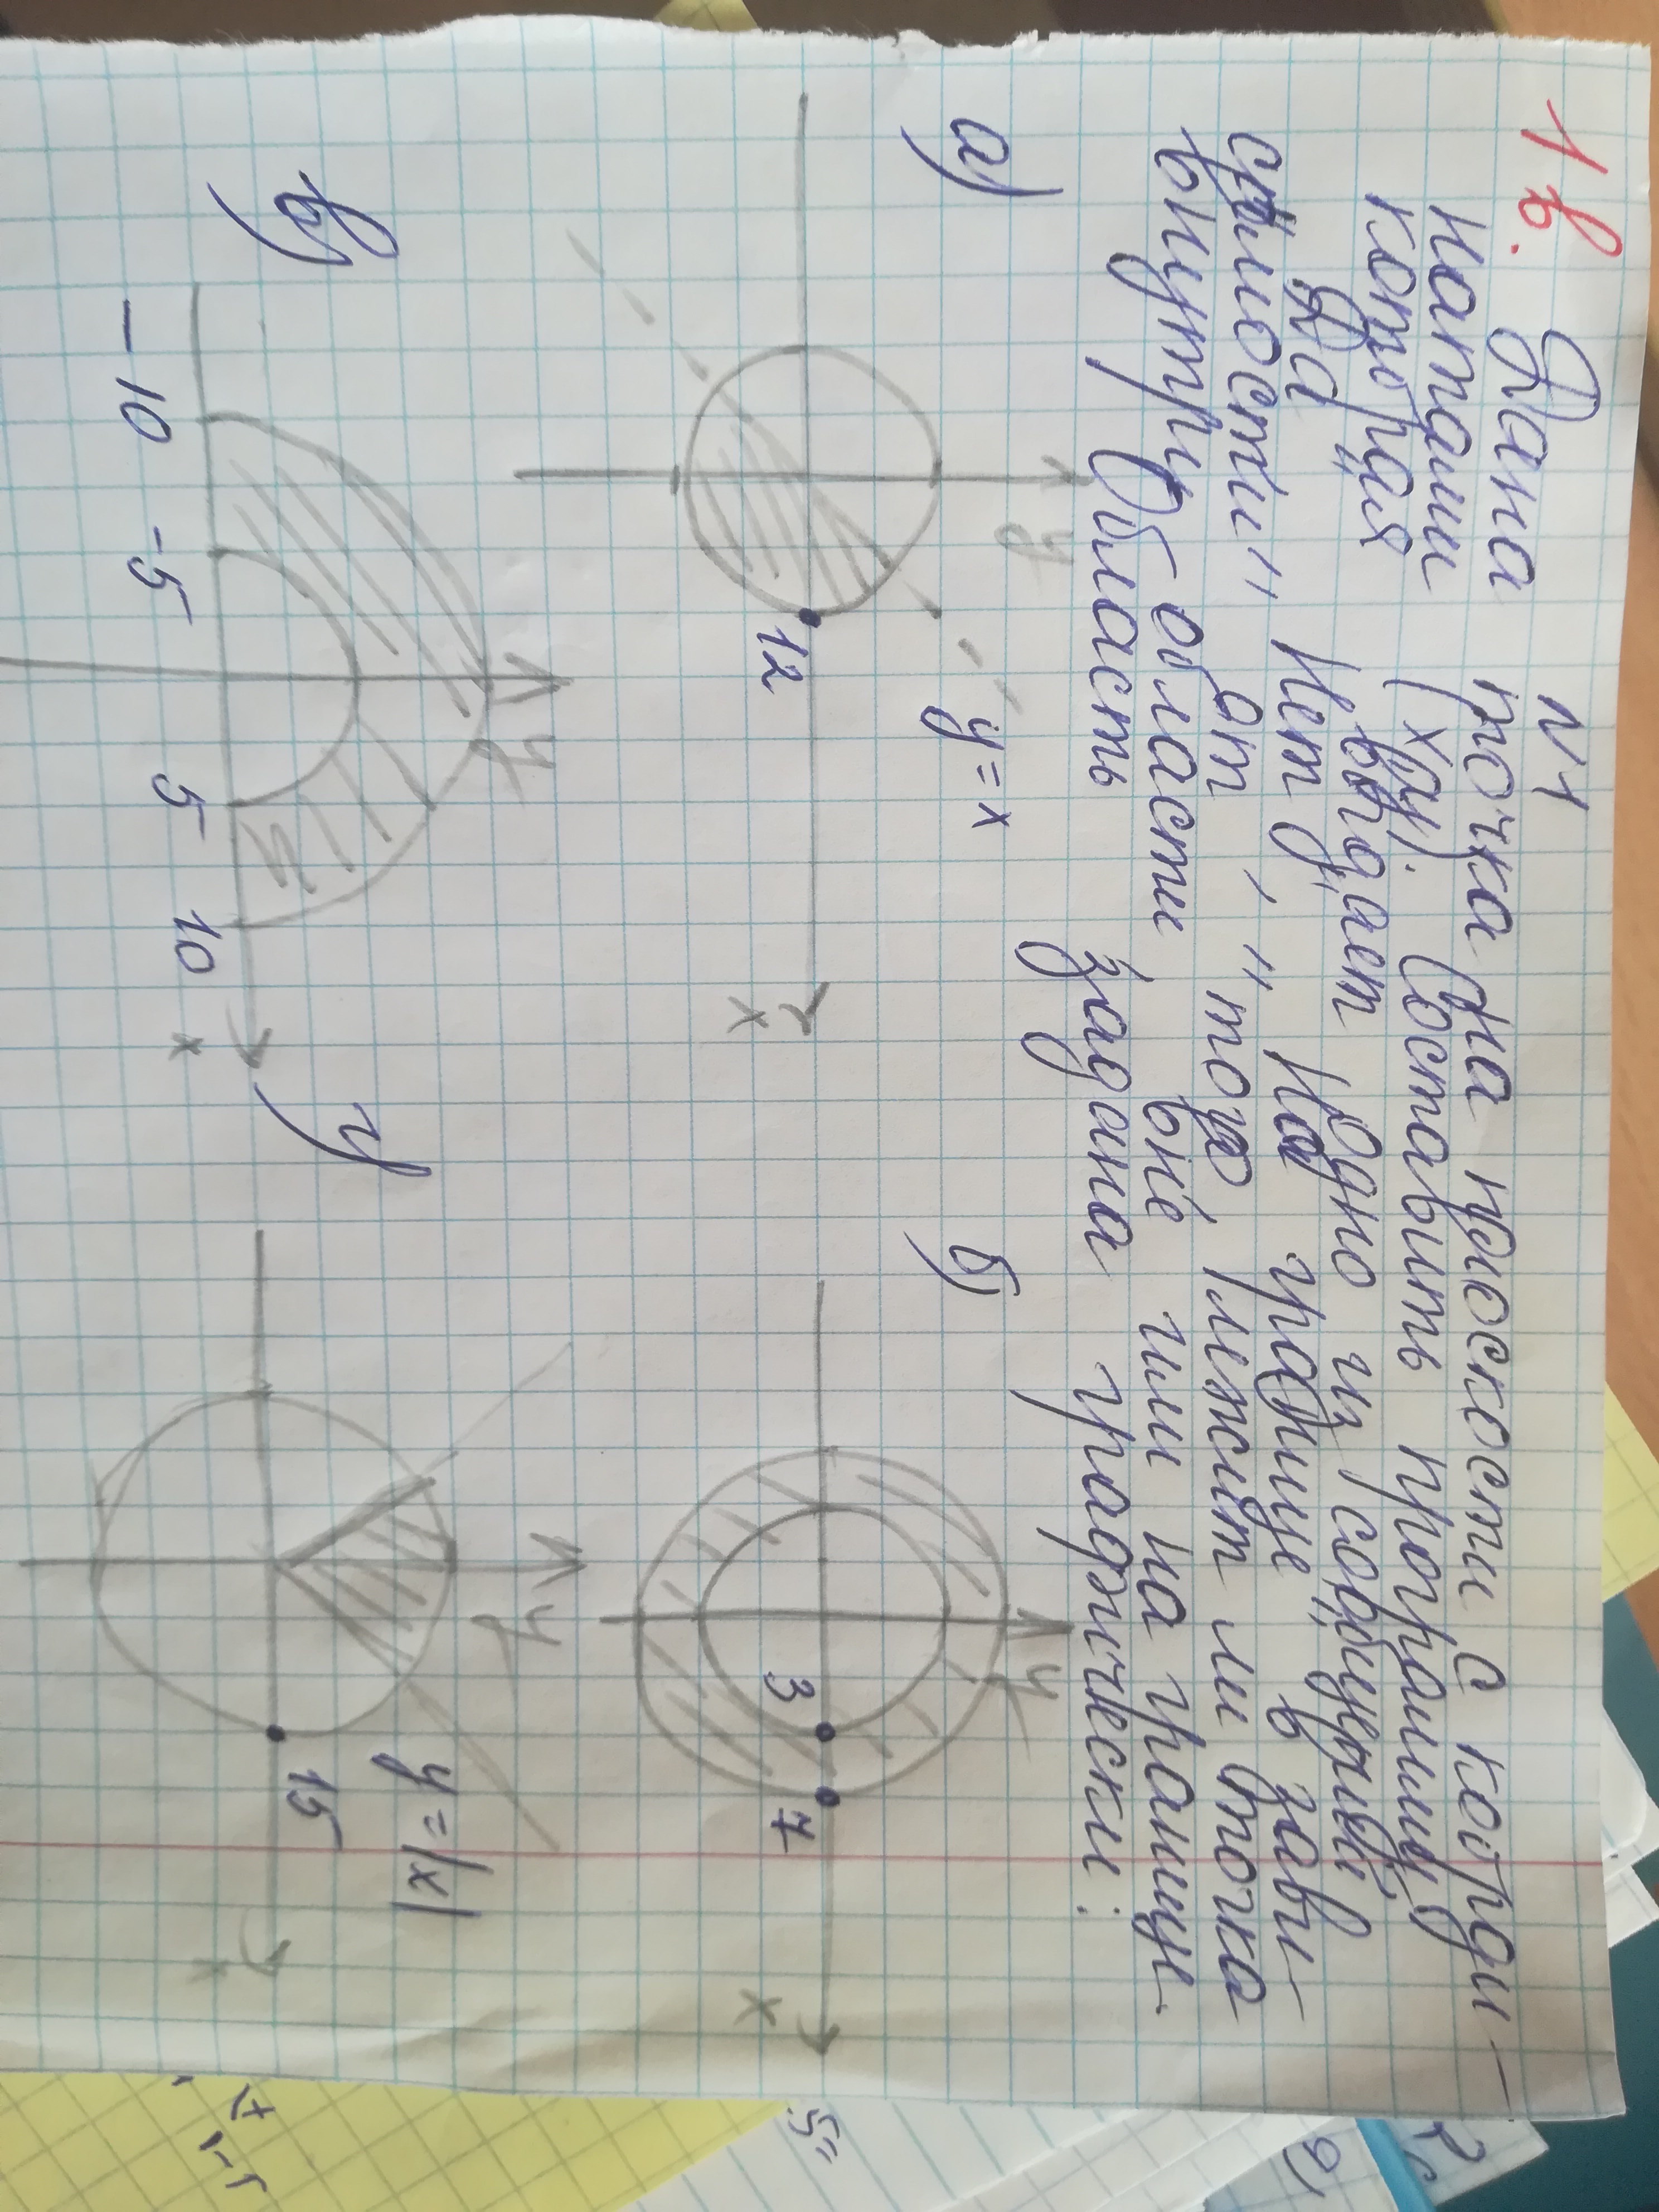 1 в.
№1
Дана точка на плоскости с коорди-
натами (x,y). Составить программу,
которая выдает одно из сообщений
"Да", "Нет", "На границе" в зави-
симости от того, лежит ли точка
внутри области, вне или на границе.
Область задана графически:
а)
y
y=x
12
x
б)
y
3
7
x
в)
y
-10
-5
5
10
x
г)
y
y=|x|
15
x